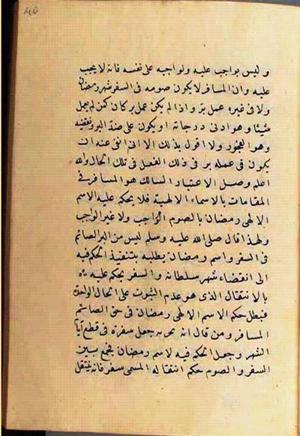 وليس بواجب عليه ولواجبه على نفسه فانه لا يجب
عليه وان المسافر لا يكون صومه فى السفر شهر رمضان
ولا فى غيره عمل بر واذا لم يكن عمل بر كان كمن لم يعمل
شيئا وهو ادنى درجاته او يكون على ضد البر ونقيضه
وهو الفجور ولا اقول بذلك الا انى انفى عنه ان
يكون فى عمله بر فى ذلك الفعل فى تلك الحال والله
اعلم وصل الاعتبار السالك هو المسافر فى
المقامات بالاسماء الالهية فلا يحكم عليه الاسم
الالهى رمضان بالصوم الواجب ولا غير الواجب
ولهذا قال صلى الله عليه وسلم ليس من البر الصيام
فى السفر واسم رمضان يطلبه بتنفيذ الحكم فيه
الى انقضاء شهر سلطانه والسفر يحكم عليه
بالانتقال الذى هو عدم الثبوت على الحال الواحدة
فبطل حكم الاسم الالهى رمضان فى حق الصائم
المسافر ومن قال انه يجزيه جعل سفره فى قطع ايام
الشهر وجعل الحكم فيه لاسم رمضان فجمع بين
السفر والصوم حكم انتقاله المسمى سفر فانه ينتقل